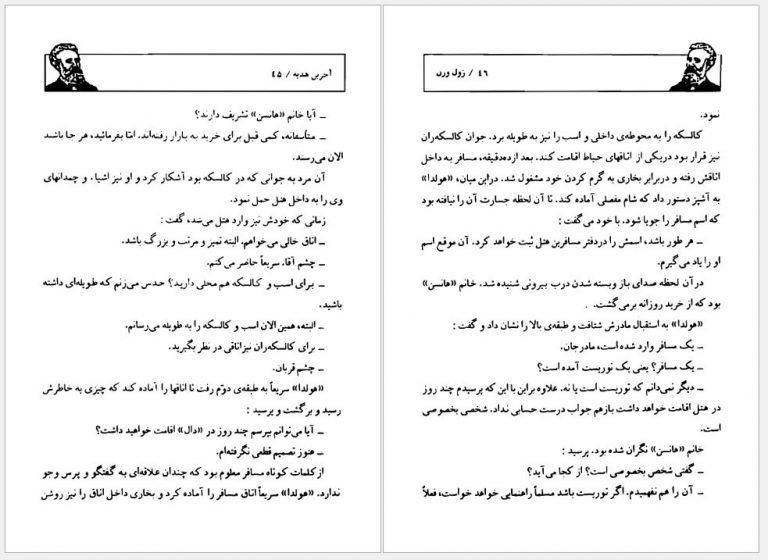 آخرین هدیه / ۴۵
ــ آیا خانم «هانسن» تشریف دارند؟
ــ متأسفانه، کمی قبل برای خرید به بازار رفته‌اند. امّا بفرمائید، هر جا باشند
الان می‌رسند.
آن مرد به جوانی که در کالسکه بود آشکار کرد و او نیز اشیاء و چمدانهای
وی را به داخل هتل حمل نمود.
زمانی که خودش نیز وارد هتل می‌شد، گفت :
ــ اتاق خالی می‌خواهم. البته تمیز و مرتب و بزرگ باشد.
ــ چشم آقا. سریعاً حاضر می‌کنم.
ــ برای اسب و کالسکه هم محلی دارید؟ حدس می‌زنم که طویله‌ای داشته
باشید.
ــ البته، همین الان اسب و کالسکه را به طویله می‌رسانم.
ــ برای کالسکه‌ران نیز اتاقی در نظر بگیرید.
ــ چشم قربان.
«هولدا» سریعاً به طبقه‌ی دوّم رفت تا اتاقها را آماده کند که چیزی به خاطرش
رسید و برگشت و پرسید :
ــ آیا می‌توانم بپرسم چند روز در «دال» اقامت خواهید داشت؟
ــ هنوز تصمیم قطعی نگرفته‌ام.
از کلمات کوتاه مسافر معلوم بود که چندان علاقه‌ای به گفتگو و پرس وجو
ندارد. «هولدا» سریعاً اتاق مسافر را آماده کرد و بخاری داخل اتاق را نیز روشن
۴۶ / ژول ورن
نمود.
کالسکه را به محوطه‌ی داخلی و اسب را نیز به طویله برد. جوان کالسکه‌ران
نیز قرار بود دریکی از اتاقهای حیاط اقامت کند. بعد ازده‌دقیقه، مسافر به داخل
اتاقش رفته و دربرابر بخاری به گرم کردن خود مشغول شد. دراین میان، «هولدا»
به آشپز دستور داد که شام مفصلی آماده کند. تا آن لحظه جسارت آن را نیافته بود
که اسم مسافر را جویا شود. با خود می‌گفت :
ــ هر طور باشد، اسمش را دردفتر مسافرین هتل ثبت خواهد کرد. آن موقع اسم
او را یاد می‌گیرم.
در آن لحظه صدای باز وبسته شدن درب بیرونی شنیده شد. خانم «هانسن»
بود که از خرید روزانه برمی‌گشت.
«هولدا» به استقبال مادرش شتافت و طبقه‌ی بالا را نشان داد و گفت :
ــ یک مسافر وارد شده است، مادرجان.
ــ یک مسافر؟ یعنی یک توریست آمده است؟
ــ دیگر نمی‌دانم که توریست است یا نه. علاوه براین با این که پرسیدم چند روز
در هتل اقامت خواهد داشت بازهم جواب درست حسابی نداد. شخصی بخصوصی
است.
خانم «هانسن» نگران شده بود. پرسید :
ــ گفتی شخص بخصوصی است؟ از کجا می‌آید؟
ــ آن را هم نفهمیدم. اگر توریست باشد مسلماً راهنمایی خواهد خواست، فعلاً